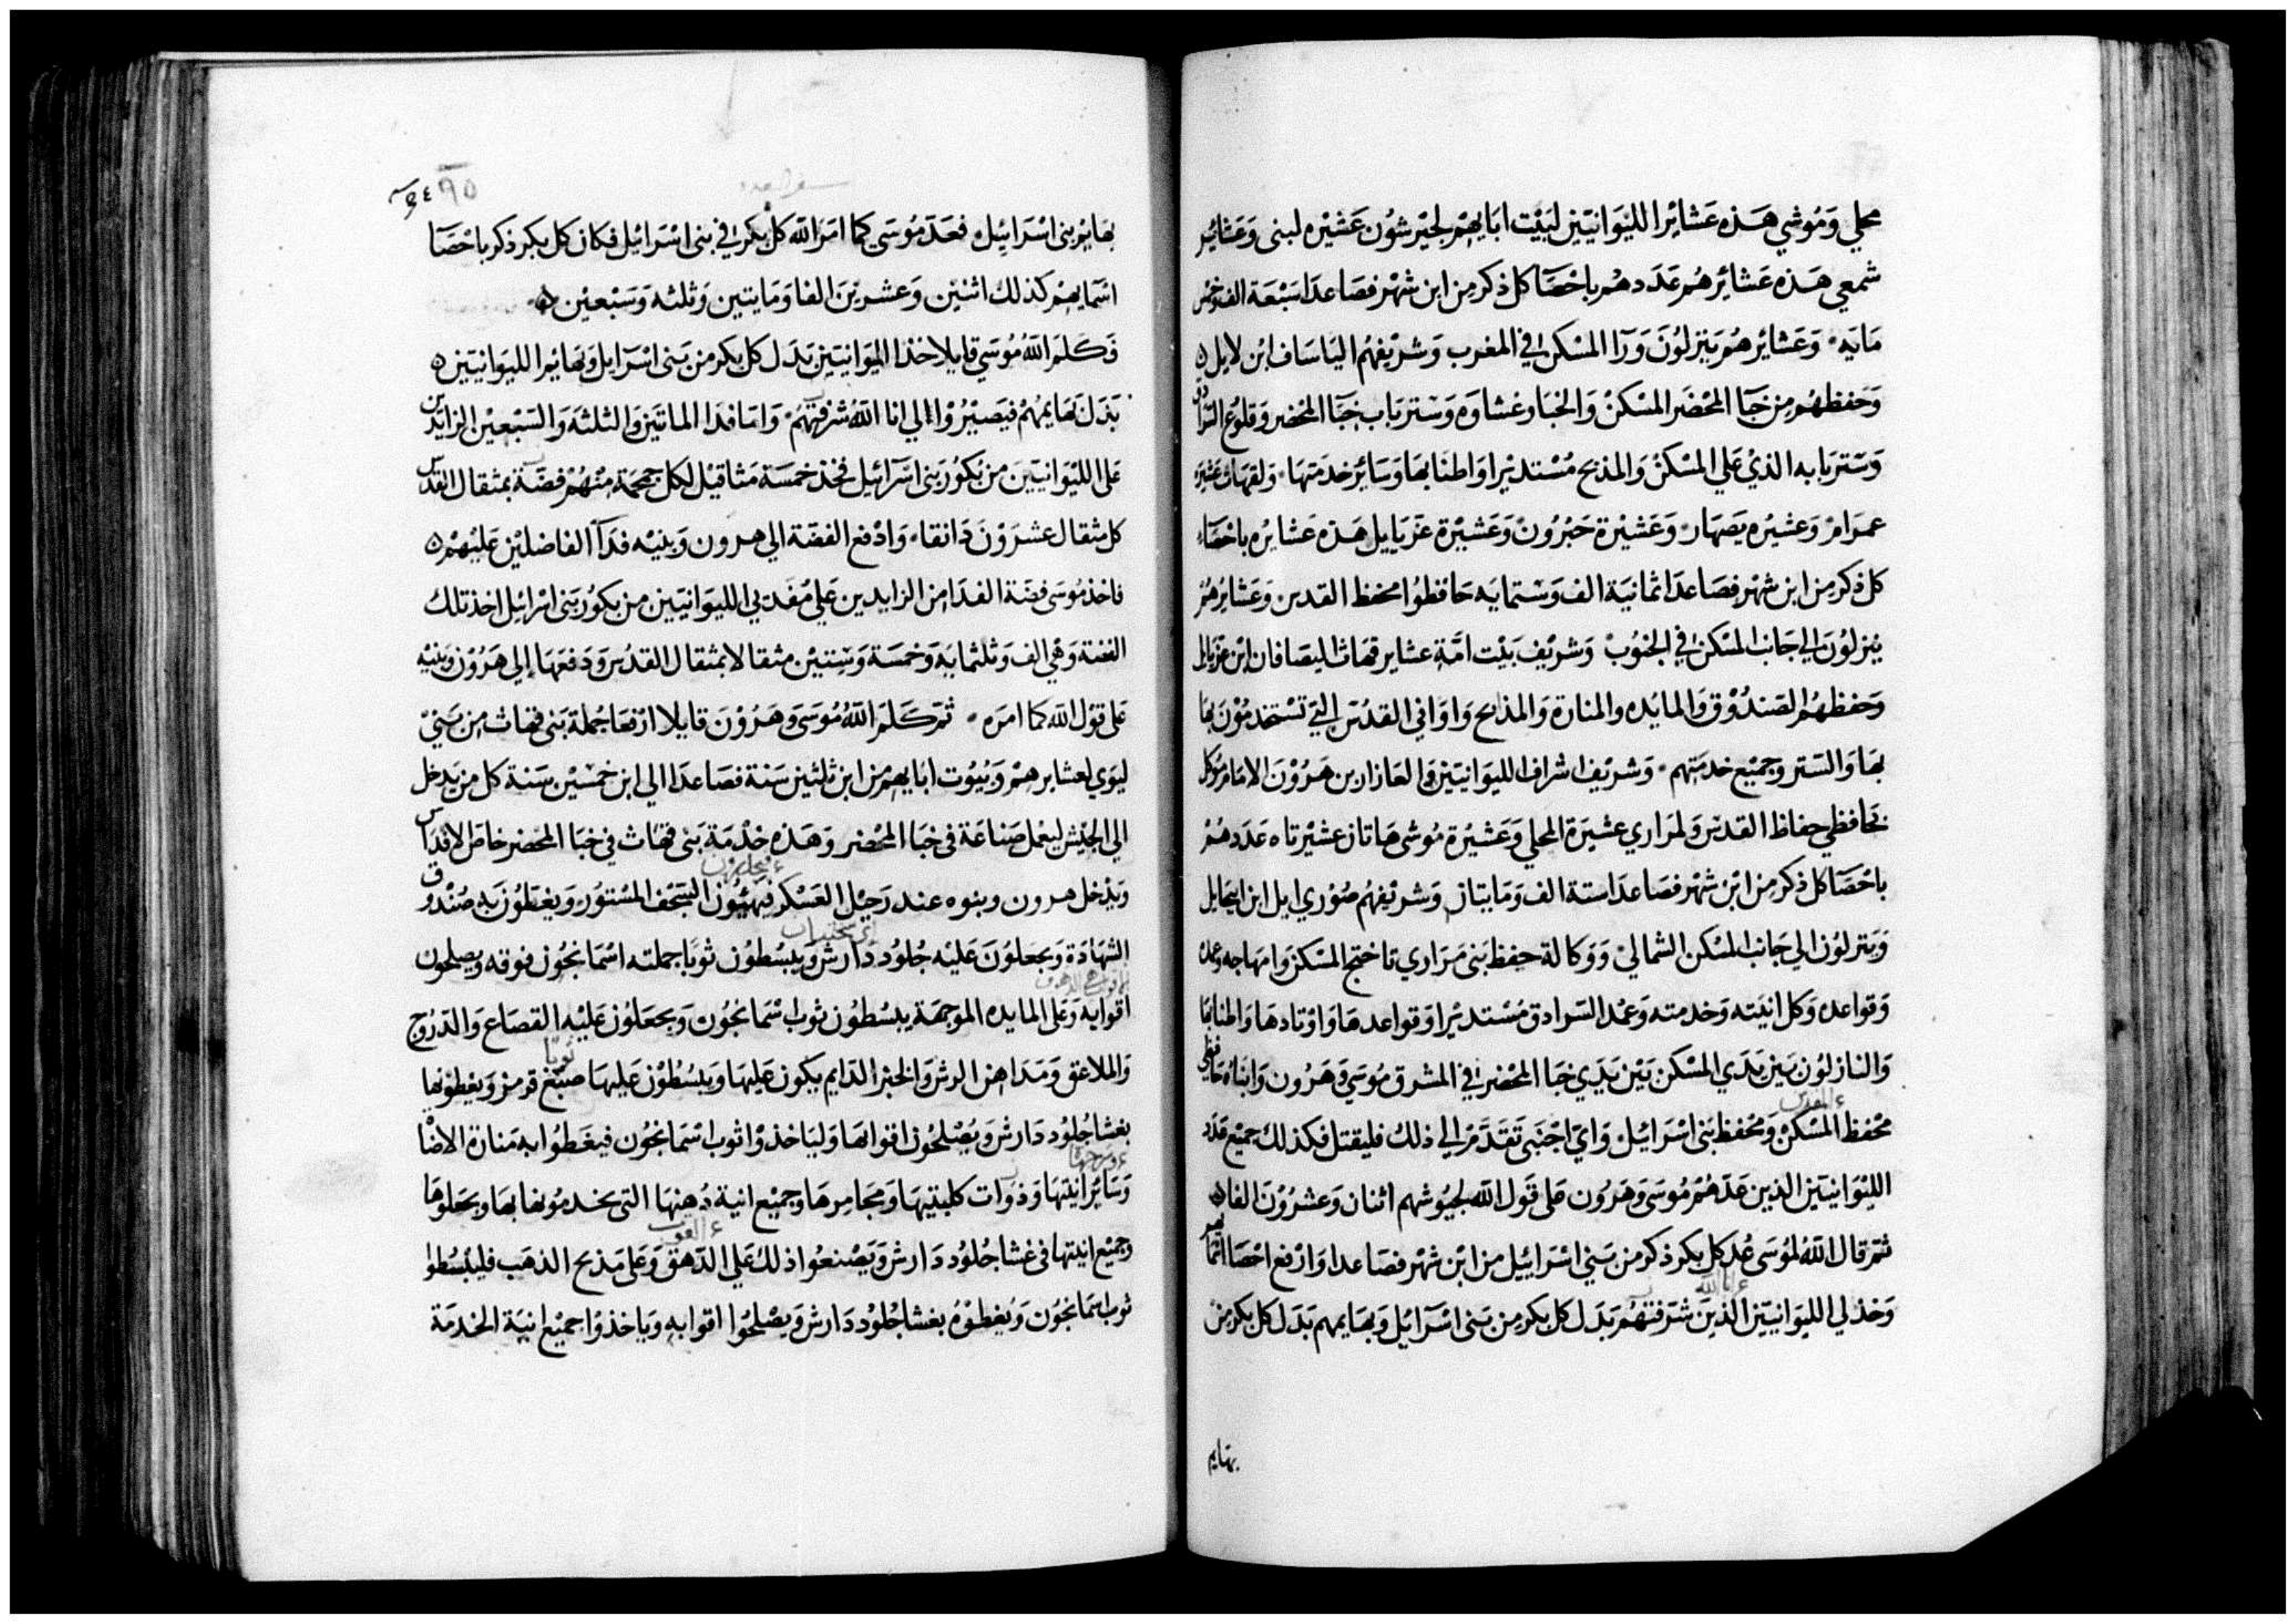 محلي وَمُوشي هَذه عَشائِر الليَوَانيَين لبَيْت ابَايهم لجيرشُون عَشيْره لبنى وَعَشائِر
شمعي هَذه عَشائِرهُم عَدَدهُم باحْصَا كل ذكر من ابن شهْر فصَاعدَا سَبْعَة الف وَخمْس
مَايَه وَعَشائِرهُم يَنزلوُنَ وَرَا المسْكن في المغرب وَشريْفهُم اليَاسَاف ابْن لايل
وَحفظهُم من خبَا المحْضَر المسْكنْ وَالخبَا وغشاوه وَستر بَاب خبَا المحْضر وَقلوُع السّرادق
وَستر بَابه الذيْ عَلي المسْكنْ وَالمذبح مُسْتديْرا وَاطنابهَا وَسَائر خدمَتهَا وَلقهَاث عَشيْره
عمرَامْ وَعشيْره يَصهَارْ وَعَشيْرة حَبْرُونْ وَعَشيْرة عَزيَاييل هَذه عَشايرُه باحْصَاء
كل ذكر من ابن شهْر فصَاعدَا ثمانيَة الف وَستمايَه حَافظوُا محفظ القدس وَعَشايرهُم
يَنزلوُنَ الي جَانب المسْكن في الجنُوبْ وَشريْف بَيْت امَّة عشاير قهَاث ليصَافان ابْن عزيَايل
وَحفظهُم الصَندُوْق وَالمايْده والمنارة وَالمذابح وَاوَاني القدُس التي تسْتخدمُوْنَ بهَا
بهَا وَالستر وَجميْع خدمَتهم وَشريْف اشراف الليوَانيَين العَازار بن هَرُوْنَ الامَام مُوكل
بحَافظي حفاظ القدس وَلمرَاري عشيْرة المحلي وَعَشيْرة مُوشى هَاتان عشيْرتاه عَدَدهُمْ
باحْصَا كل ذكر من ابْن شهْر فصَاعدَا ستة الف وَمَايتان وَشريْفهُم صُوْري ايل ابن ابيحَايل
وَيَنزلوُن الي جَانب المسْكن الشماليْ وَوَكالة حفظ بَني مَرَاري تاختج المسْكن وَامهَاجه وَعمده
وَقوَاعده وَكل انيَته وَخدمته وَعمُد السّرادق مُسْتديْرا وَقوَاعدهَا وَاوْتادهَا وَاطنابهَا
وَالنازلوُن بَين يَدَي المسْكن بَيْن يَدَي خبَا المحْضر في المشرق مُوسَي وَهَرُون وَابنَاهُ حَافظي
ء القدس
محْفظ المسْكنْ وَمحْفظ بَني اسْرَائيْلْ وَايّ اجْنَبى تَقَدَّمْ الي ذلكْ فليقتل فكذلك جميْع عَدَد
الليْوَانيَين الذين عَدّهُمْ مُوسَى وَهَرُون عَلى قَول الله لجيُوشهم اثنان وَعشرُوْنَ الفا
ثم قال اللهُ لمُوسَى عُد كل بكر ذكر من بَني اسْرَاييْل من ابْن شهْر فصَاعدا وَارْفع احْصَا اسمائهم
ء انا الله
وَخذ لي الليوَانيَين الذين شرَفتهُم بَدَل كل بكر من بَني اسْرَائيْل وَبهَايمهم بَدَل كل بكر من
بهايم
٩٥
سفر العدد
بهَايم بَني اسْرَائيْل فعَدَّ مُوسَى كما امَرَ الله كل بكر في بني اسْرَائيْل فكان كل بكر ذكر باحْصَا
اسْمَايهمْ كذلك اثنيْن وَعشريْنَ الفا وَمايتين وَثلثه وَسَبْعيْن
فَكَلمَ اللهُ مُوسَي قايلا خذ الليوَانيَين بَدَل كل بكر من بَني اسْرَايل وَبهَائم الليوَانيَين
بَدَل بَهايمهُمْ فيَصيْرُوْا الي انا اللهُ شرفتهُم وَامَا فدَا الماتَين وَالثلثة وَالسَبْعيْن الزايدين
عَلى الليْوَانيَين من بكوُر بَني اسرَائيْل فخذ خمسَة مَثاقيْل لكل جمجمَة منْهُمْ فضّة بمثقال القدس
كل مثقال عشرَوْن دَانقا وَادْفع الفضّة الي هرون وَبنيْه فدَا الفاضليْن عَليْهم
فاخذ مُوسَى فضّة الفدَا من الزايدين عَليْ مُفدَيي الليوَانيَين من بكوُر بَني اسْرائيل اخذ تلك
الفضة وَهي الف وَثلثمايَه وَخمسَة وَستيْن مثقالا بمثقال القدُس وَدفعَهَا إلي هَرُوْن وَبنيْه
عَلى قوْل الله كما امَره ثم كَلمَ اللهُ مُوسَى وَهَرُوْنَ قايلا ارْفعَا جُملة بَني قهاث من بَنيْ
ليوي لعشايرهمْ وَبيُوت ابَايهم من ابن ثلثين سَنة فصَاعدَا الي ابن خمسيْن سَنة كل من يَدخل
الي الجيْش ليعْمل صنَاعَة في خبَا المحْضر وَهَذه خدْمَة بَني قهَاث في خبَا المحَضر خاصَ الاقدَاس
وَيَدْخل هرون وبنوه عند رَحيْل العَسْكر فيهَيُّون السَجف المسْتوُر وَيغطوُن به صُنْدوق
الشهَادَة وَيجعَلوُنَ عَليْه جُلوُد دَارش وَيبسُطوُن ثوْبًا جملته اسْمَانجُون فوقه وَيصلحون
اقوابه وَعَلى المايده الموجهَة يبسُطوُن ثوب اسْمَانجُون وَيجعَلوُن عَليْه القصَاع وَالدرُوج
ثوبًا
وَالملاعق وَمَدَاهن الرش وَالخبز الدايم يكون عَليهَا وَيبسُطوْن عَليهَا صبْغ قرمز وَيغطوْنها
بغشا جُلوُد دَارش وَيصْلحُون اقوابهَا وَليَاخذوْا ثوب اسْمَانجُون فيغَطوُا به مَنارة الاضا
ء وسرجها
وَسَائر انيتهَا وَذوَات كلبتيهَا وَمجَامرهَا وَجميْع انية دُهنهَا التي يخدمُونها بهَا وَيجعَلوهَا
وجميْع انيتها في غشا جُلوُد دَارش وَيَصْنعُوا ذلكْ عَلي الدّهق وَعَلى مَذبح الذهَب فليبْسُطوا
ثوب اسمَانجُون وَيُغطوْهُ بغشا جُلوْد دَارش وَيصْلحُوا اقوابه وَيَاخذوْا جميْع انيَة الخدمَة